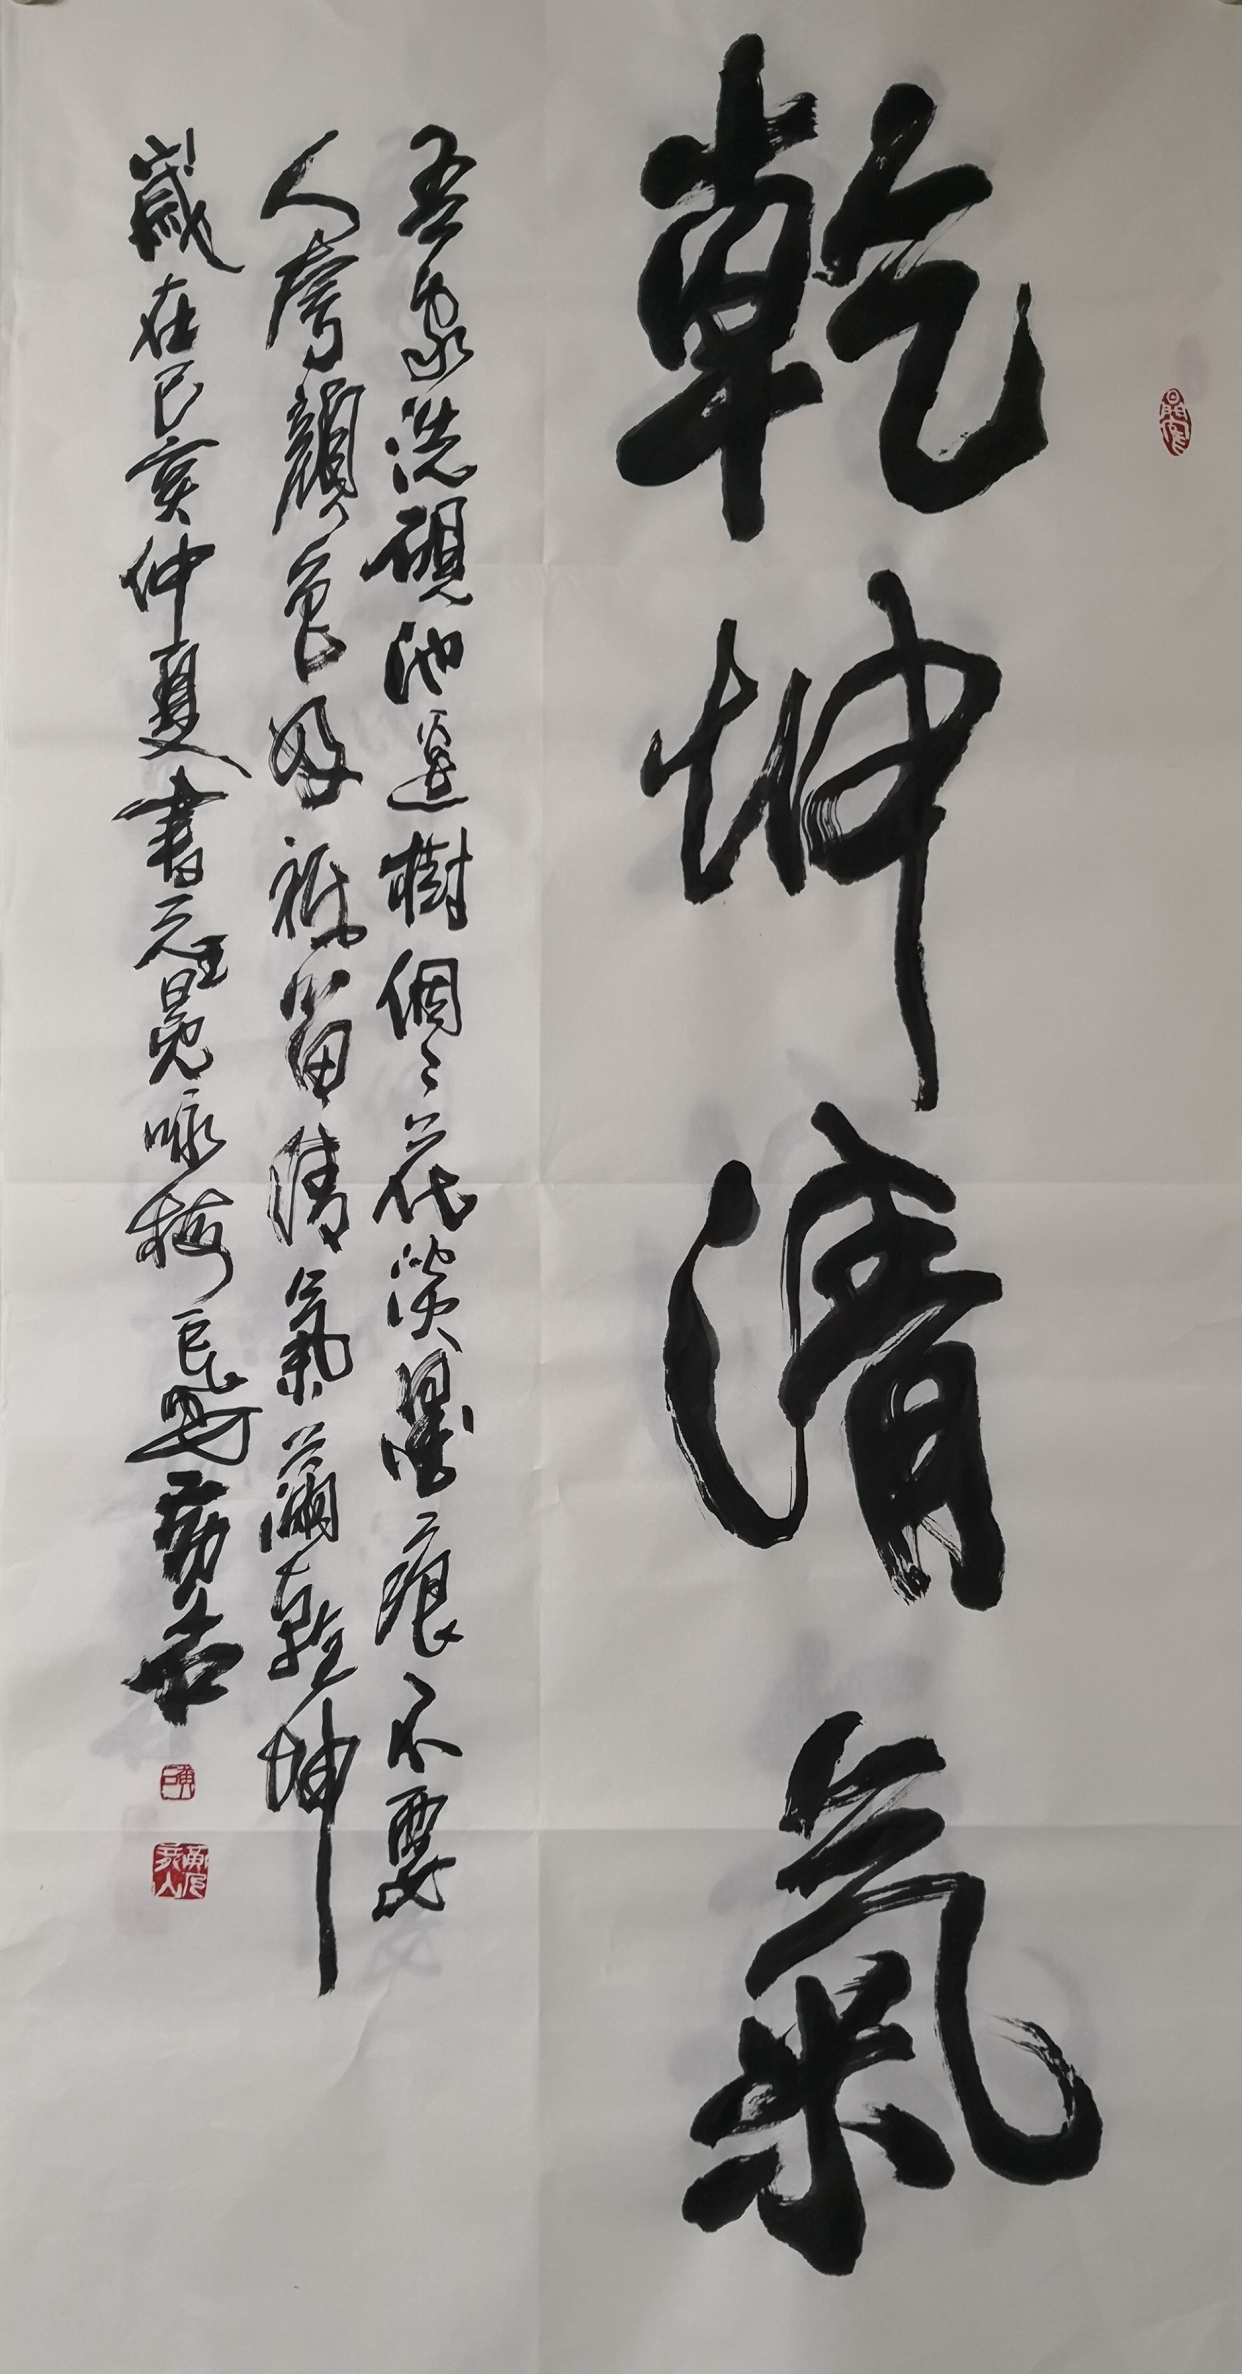 乾坤清氣
吾家洗硯池邊樹個々花淡墨痕不要
人夸顏色好衹留清氣滿乾坤
歲在己亥仲夏書元王冕詠梅